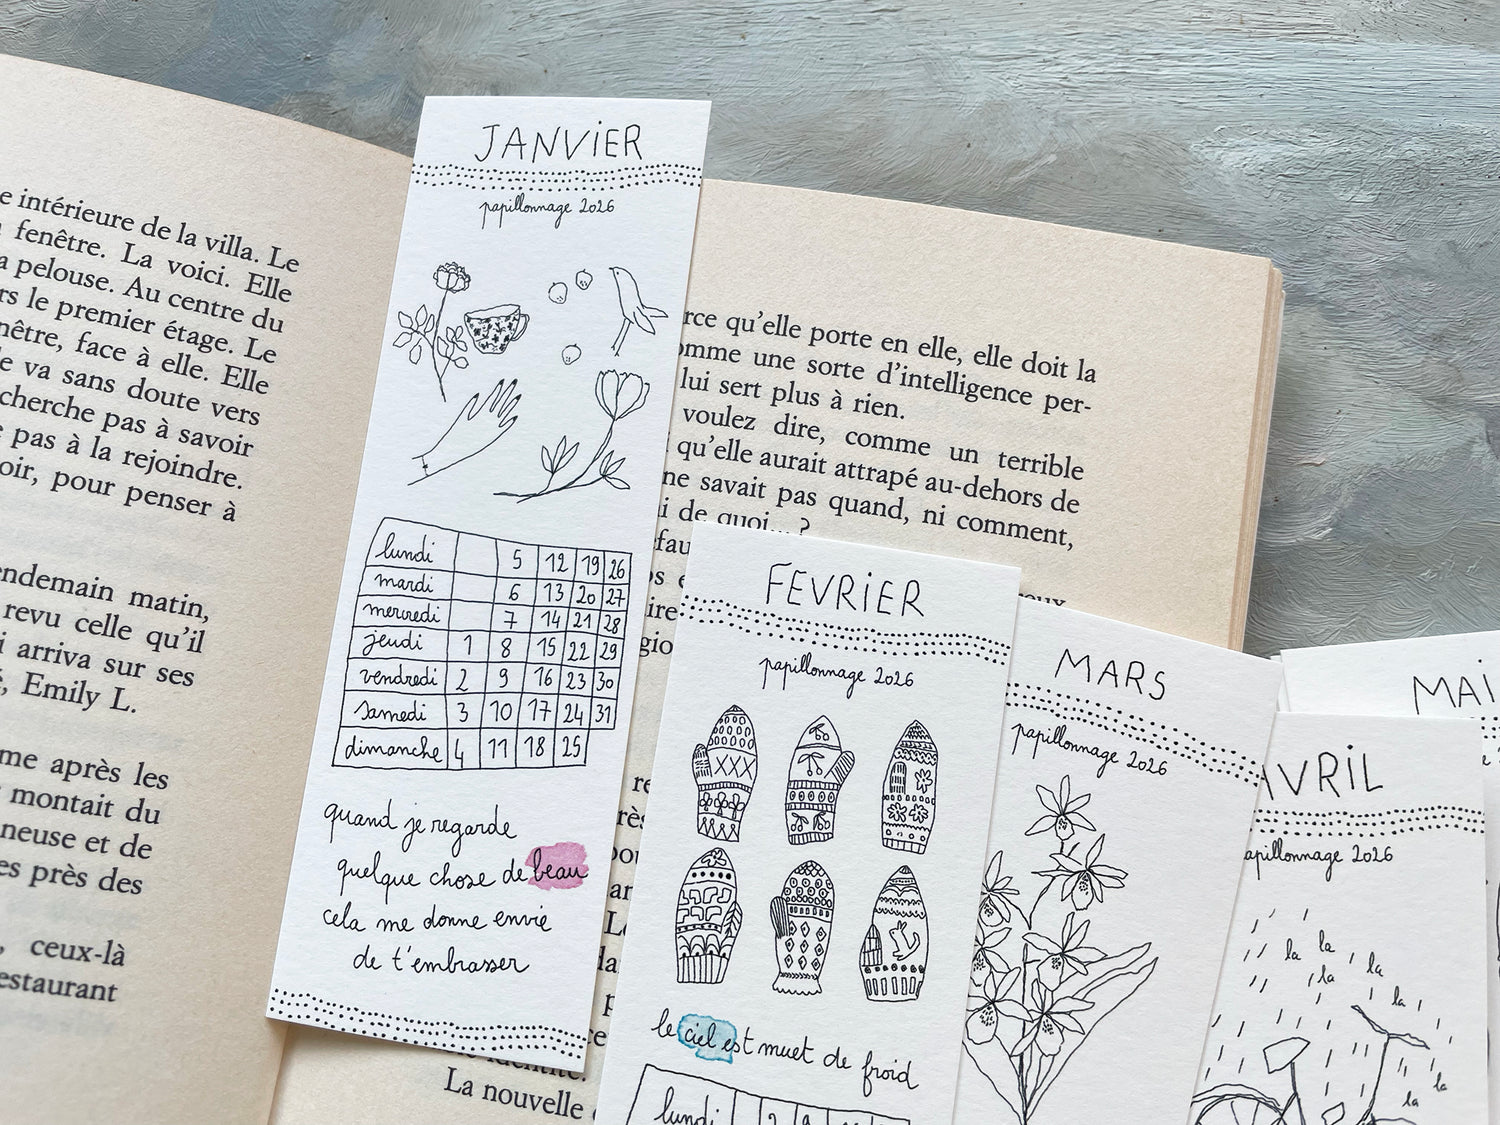 e intérieure de la villa. Le
fenêtre. La voici. Elle
a pelouse. Au centre du
rs le premier étage. Le
nêtre, face à elle. Elle
e va sans doute vers
cherche pas à savoir
e pas à la rejoindre.
oir, pour penser à
endemain matin,
revu celle qu'il
i arriva sur ses
, Emily L.
me après les
montait du
neuse et de
es près des
, ceux-là
estaurant
JANViER
papillonnage 2026
lundi 5 12 19 26
mardi 6 13 20 27
mercredi 7 14 21 28
jeudi 1 8 15 22 29
vendredi 2 9 16 23 30
samedi 3 10 17 24 31
dimanche 4 11 18 25
quand je regarde
quelque chose de beau
cela me donne envie
de t'embrasser
rce qu'elle porte en elle, elle doit la
omme une sorte d'intelligence per-
lui sert plus à rien.
voulez dire, comme un terrible
qu'elle aurait attrapé au-dehors de
ne savait pas quand, ni comment,
i de quoi... ?
La nouvelle
FEVRiER
papillonnage 2026
le ciel est muet de froid
lundi 2 9
MARS
papillonnage 2026
AVRiL
apillonnage 2026
la
la
la
la
la
la
la
MAi